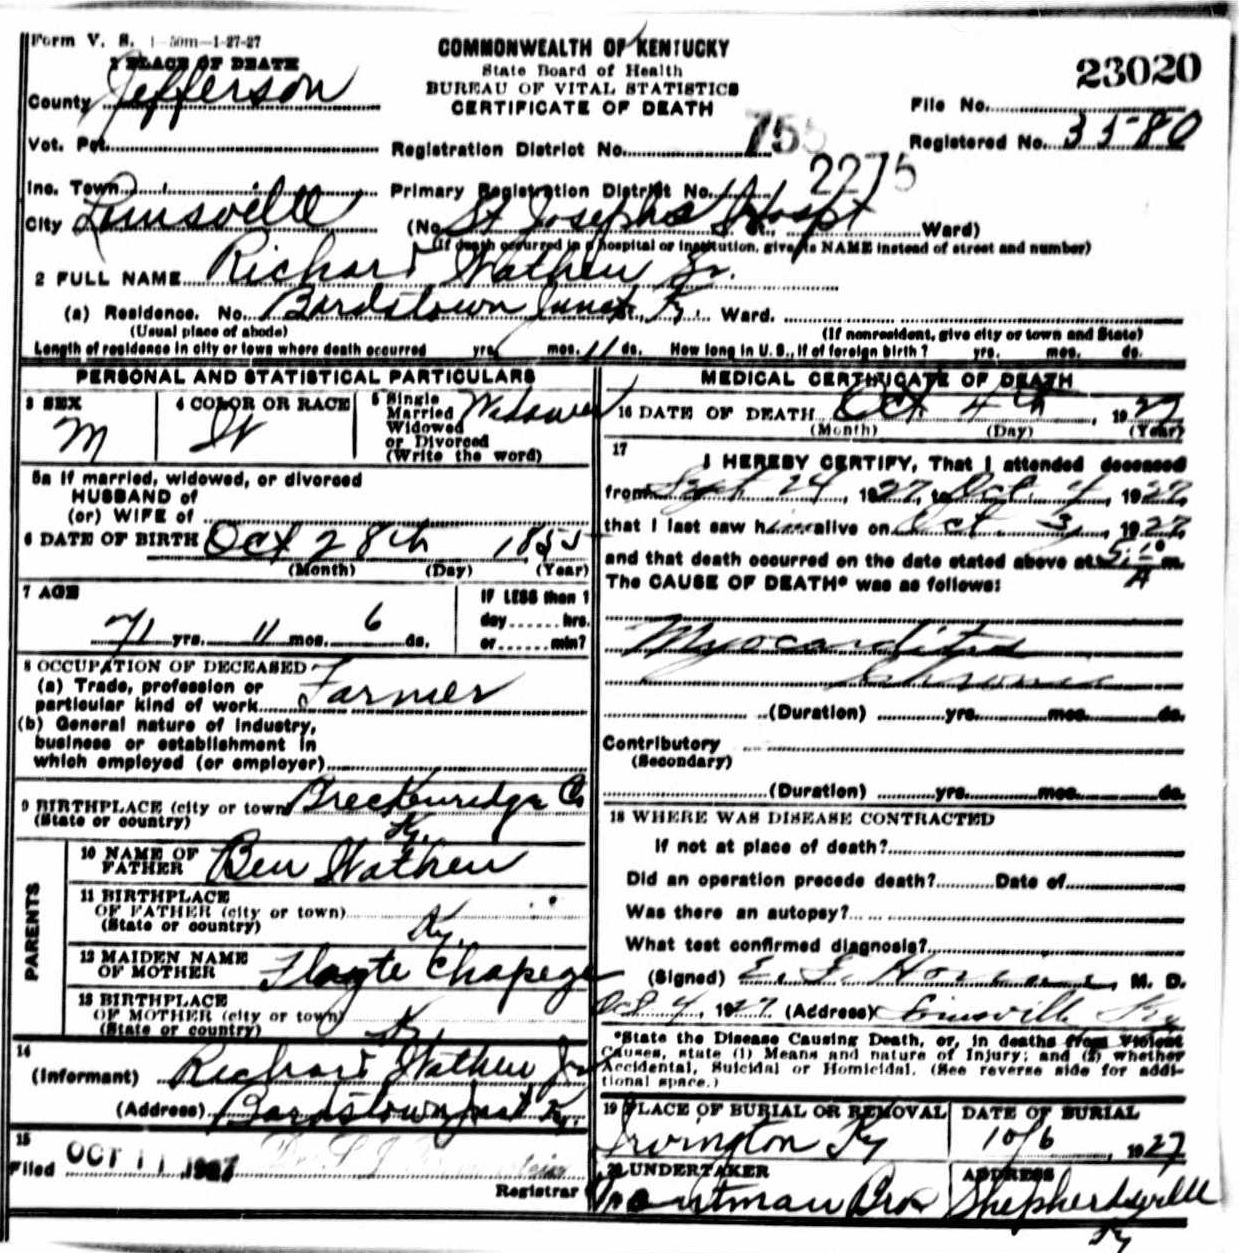 Form V. S. 1-50m-1-27-27
1 PLACE OF DEATH
County Jefferson
Vot. Pct.
Inc. Town
City Louisville
COMMONWEALTH OF KENTUCKY
State Board of Health
BUREAU OF VITAL STATISTICS
CERTIFICATE OF DEATH
23020
File No.
Registered No. 3580
Registration District No. 755
Primary Registration District No. 2275
(No. St Josephs Hospt St., Ward)
(If death occurred in a hospital or institution, give its NAME instead of street and number)
2 FULL NAME Richard Wathen Sr.
(a) Residence. No. Bardstown Junct, Ky. Ward.
(Usual place of abode) (If nonresident, give city or town and State)
Length of residence in city or town where death occurred yrs. mos. 11 ds. How long in U. S., if of foreign birth? yrs. mos. ds.
PERSONAL AND STATISTICAL PARTICULARS
3 SEX M
4 COLOR OR RACE W
5 Single Married Widowed or Divorced (Write the word) Widower
5a If married, widowed, or divorced
HUSBAND of
(or) WIFE of
6 DATE OF BIRTH Oct 28th 1855
(Month) (Day) (Year)
7 AGE
71 yrs. 11 mos. 6 ds.
IF LESS than 1
day......hrs.
or......min?
8 OCCUPATION OF DECEASED
(a) Trade, profession or
particular kind of work Farmer
(b) General nature of industry,
business or establishment in
which employed (or employer)
9 BIRTHPLACE (city or town) Breckenridge Co
(State or country) Ky.
PARENTS
10 NAME OF FATHER Ben Wathen
11 BIRTHPLACE
OF FATHER (city or town)
(State or country) Ky.
12 MAIDEN NAME
OF MOTHER
13 BIRTHPLACE
OF MOTHER (city or town)
(State or country) Ky.
14
(Informant) Richard Wathen Jr
(Address) Bardstown Junct Ky.
15
Filed OCT 11 1927
Registrar
MEDICAL CERTIFICATE OF DEATH
16 DATE OF DEATH Oct 4th, 1927
(Month) (Day) (Year)
17
I HEREBY CERTIFY, That I attended deceased
from Sept 24, 1927, to Oct. 4, 1927,
that I last saw him alive on Oct 3, 1927,
and that death occurred on the date stated above at 5:10 A m.
The CAUSE OF DEATH* was as follows:
Myocarditis
Chronic
(Duration) yrs. mos. ds.
Contributory
(Secondary)
(Duration) yrs. mos. ds.
18 WHERE WAS DISEASE CONTRACTED
If not at place of death?
Did an operation precede death? Date of
Was there an autopsy?
What test confirmed diagnosis?
(Signed) E. M. D.
Oct 4, 1927. (Address) Louisville Ky
*State the Disease Causing Death, or, in deaths from Violent
Causes, state (1) Means and nature of Injury; and (2) whether
Accidental, Suicidal or Homicidal. (See reverse side for addi-
tional space.)
19 PLACE OF BURIAL OR REMOVAL
Irvington Ky
DATE OF BURIAL
10/6, 1927
20 UNDERTAKER
Troutman Bros
ADDRESS
Shepherdsville
Ky